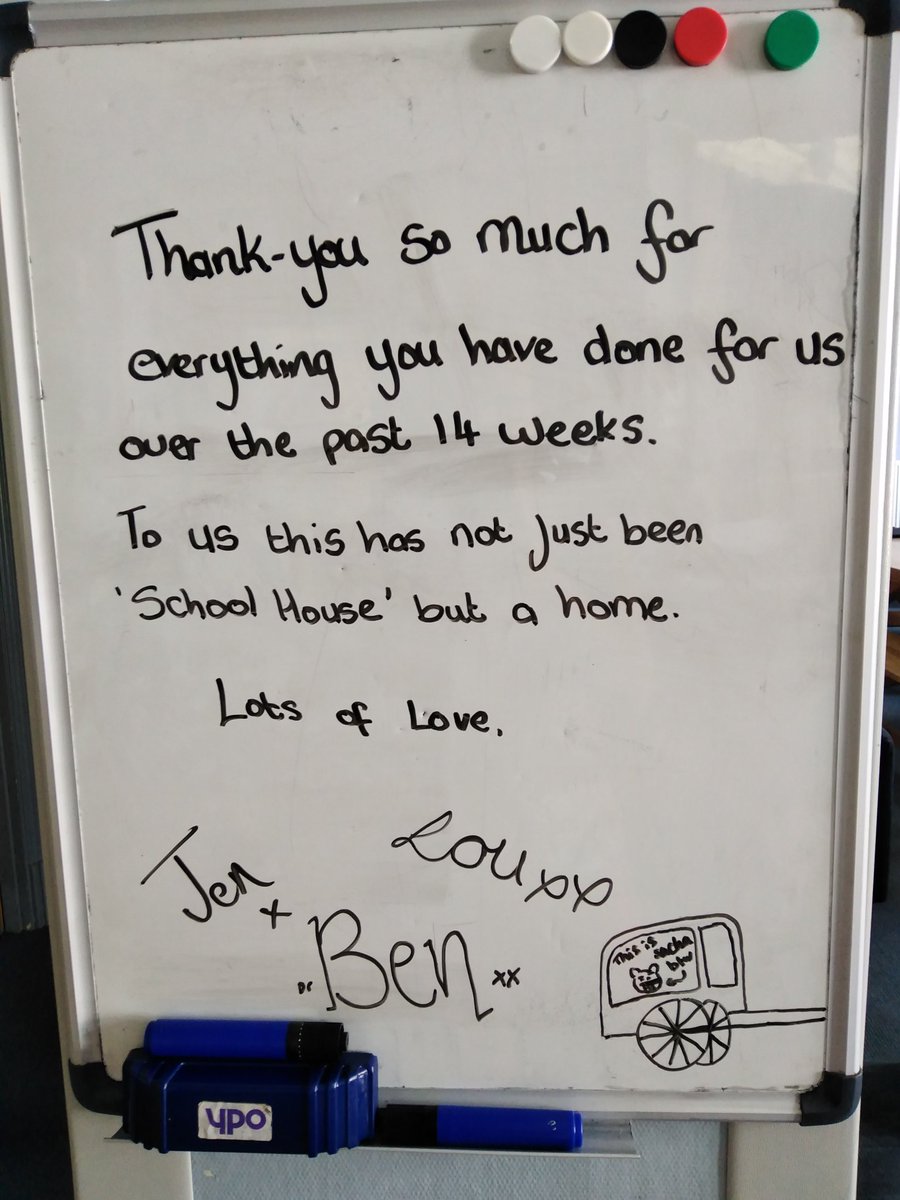 Thank-you so much for
everything you have done for us
over the past 14 weeks.
To us this has not just been
'School House' but a home.
Lots of Love.
Jen x
Lou xx
Dr Ben xx
This is sacha
btw
ypo